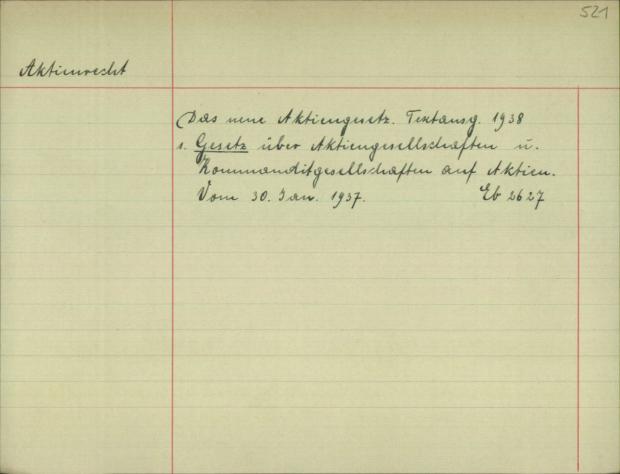 521
Aktienrecht
Das neue Aktiengesetz. Textausg. 1938
s. Gesetz über Aktiengesellschaften u.
Kommanditgesellschaften auf Aktien.
Vom 30. Jan. 1937. Eb 2627